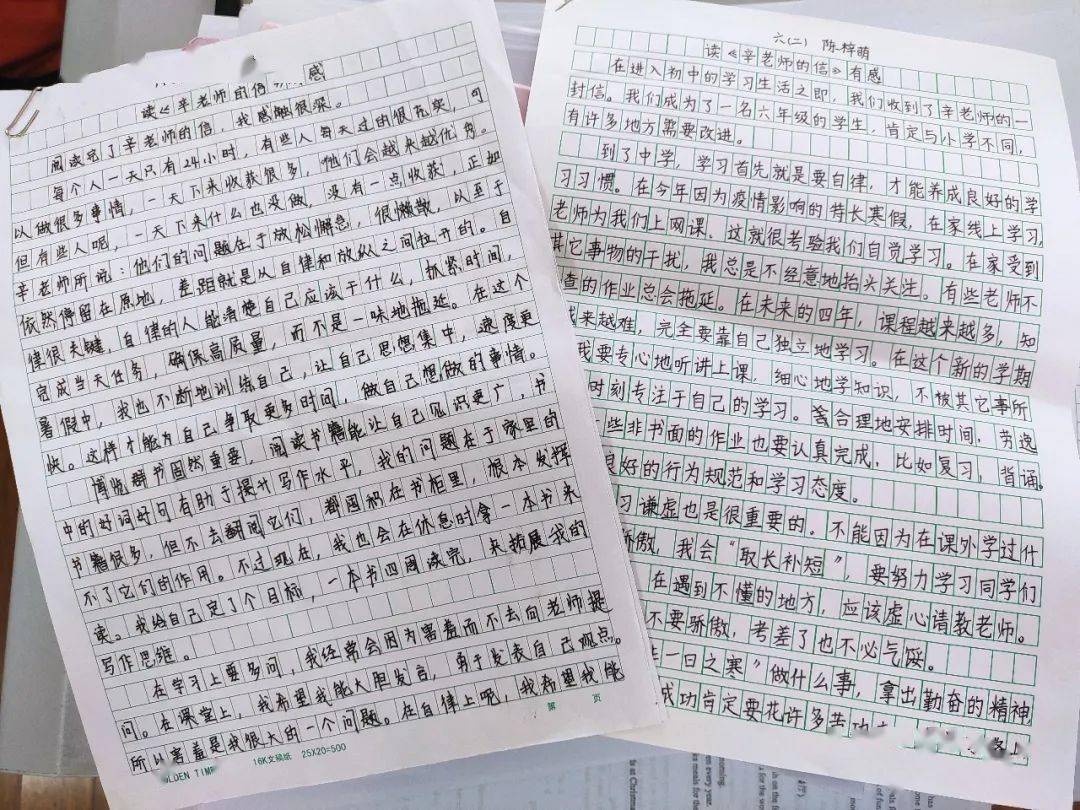 感
读《辛老师的信
阅读完了辛老师的信，我感触很深。
每个人一天只有24小时，有些人每天过的很充实，可
以做很多事情，一天下来收获很多，他们会越来越优秀。
但有些人呢，一天下来什么也没做，没有一点收获，正如
辛老师所说：他们的问题在于放松懈怠，很懒散，以至于
依然停留在原地，差距就是从自律和放纵之间拉开的。自
律很关键，自律的人能清楚自己应该干什么，抓紧时间，
完成当天任务，确保高质量，而不是一味地拖延。在这个
暑假中，我也不断地训练自己，让自己思想集中，速度更
快。这样才能为自己争取更多时间，做自己想做的事情。
博览群书固然重要，阅读书籍能让自己见识更广，书
中的好词好句有助于提升写作水平，我的问题在于家里的
书籍很多，但不去翻阅它们，都囤积在书柜里，根本发挥
不了它们的作用。不过现在，我也会在休息时拿一本书来
读。我给自己定了个目标，一本书四周读完，来拓展我的
写作思维。
在学习上要多问，我经常会因为害羞而不去向老师提
问。在课堂上，我希望我能大胆发言，勇于发表自己观点。
所以害羞是我很大的一个问题。在自律上呢，我希望我能
16K文稿纸 25X20=500
第 页
OLDEN TIM
六(二) 陈梓萌
读《辛老师的信》有感
在进入初中的学习生活之即，我们收到了辛老师的一
封信。我们成为了一名六年级的学生，肯定与小学不同，
有许多地方需要改进。
到了中学，学习首先就是要自律，才能养成良好的学
习习惯。在今年因为疫情影响的特长寒假，在家线上学习，
老师为我们上网课，这就很考验我们自觉学习。在家受到
其它事物的干扰，我总是不经意地抬头关注。有些老师不
查的作业总会拖延。在未来的四年，课程越来越多，知
越来越难，完全要靠自己独立地学习。在这个新的学期
我要专心地听讲上课，细心地学知识，不被其它事所
时刻专注于自己的学习。合理地安排时间，劳逸
些非书面的作业也要认真完成，比如复习，背诵。
良好的行为规范和学习态度。
习谦虚也是很重要的。不能因为在课外学过什
骄傲，我会“取长补短”，要努力学习同学们
在遇到不懂的地方，应该虚心请教老师。
不要骄傲，考差了也不必气馁。
一日之寒”做什么事，拿出勤奋的精神
成功肯定要花许多苦功